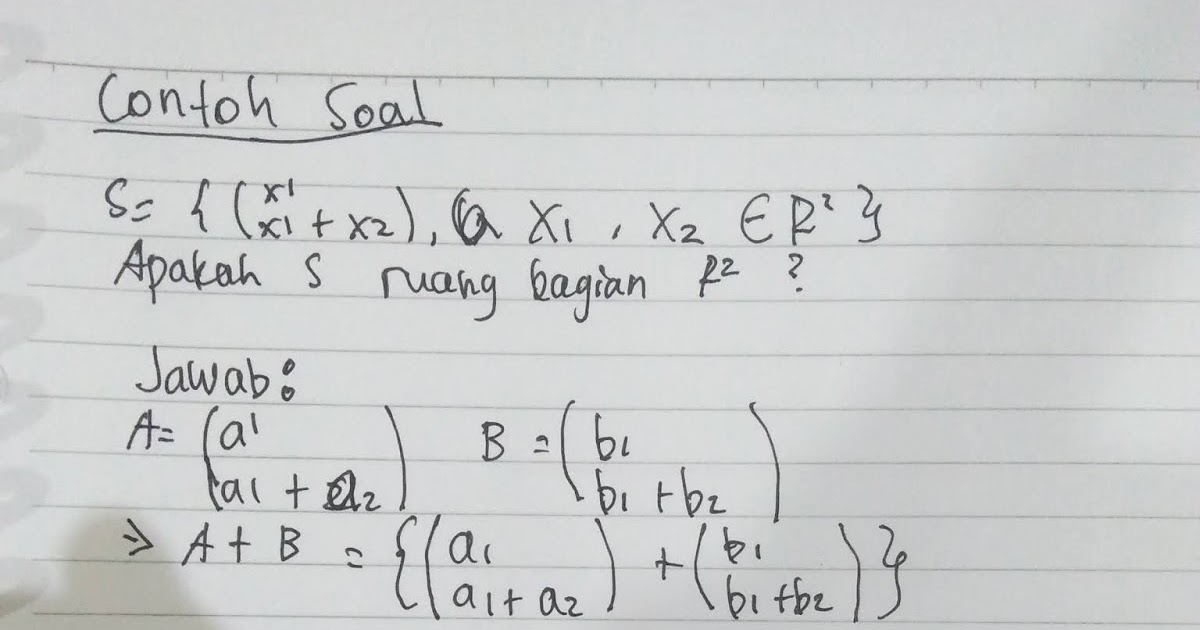 Contoh Soal
S = { (x1 x1 + x2), x1, x2 ∈ R² }
Apakah S ruang bagian R² ?
Jawab:
A = (a1 a1 + a2) B = (b1 b1 + b2)
⇒ A + B = { (a1 a1 + a2) + (b1 b1 + b2) }